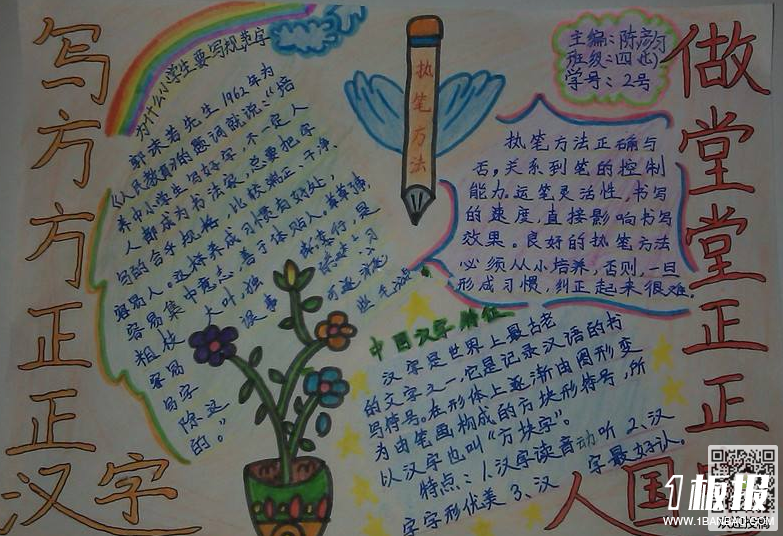 写方方正正汉字
做堂堂正正
人国
为什么小学生要写规范字
郭沫若先生1962年为
《人民教育》的题词就说："培
养中小学生写好字,不一定人
人都成为书法家,总要把字
写的合乎规格,比较端正、干净、
容易人。这样养成习惯有好处,
容易集中意志,善于体贴人。草草
粗枝大叶,独
容易误事
习
除
的。"
执笔方法
主编:陈彦
班级:四
学号:2号
执笔方法正确与
否,关系到笔的控制
能力.运笔灵活性,书写
的速度,直接影响书写
效果。良好的执笔方法
必须从小培养,否则,一旦
形成习惯,纠正起来很难.
中国汉字特征
汉字是世界上最古老
的文字之一,它是记录汉语的书
写符号。在形体上逐渐由图形变
为由笔画构成的方块形符号,所
以汉字也叫"方块字"。
特点:1.汉字读音动听 2、汉
字字形优美 3、汉字最好认。
1板报
WWW.1BANBAO.COM